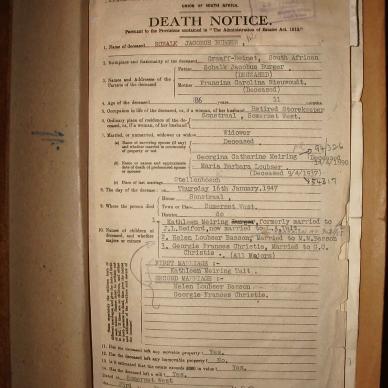 UNION OF SOUTH AFRICA.
DEATH NOTICE.
Pursuant to the Provisions contained in "The Administration of Estates Act, 1913"
1. Name of deceased SCHALK JACOBUS BURGER,
2. Birthplace and Nationality of the deceased Graaff-Reinet, South African
3. Names and Addresses of the Parents of the deceased Father Schalk Jacobus Burger
(DECEASED)
Mother Francina Carolina Nieuwoudt,
(Deceased)
4. Age of the deceased 86 years 11 months
5. Occupation in life of the deceased, or, if a woman, of her husband Retired Storekeeper
6. Ordinary place of residence of the deceased, or, if a woman, of her husband Sonstraal, Somerset West.
7. Married, or unmarried, widower or widow Widower
Deceased
94306
Georgina Catharine Meiring Deceased
Maria Barbara Loubser
(Deceased 9/4/1937)
Stellenbosch
8. The day of the decease, on the Thursday 16th January, 1947
9. Where the person died House Sonstraal,
Town or Place Somerset West.
District do
1. Kathleen Meiring Burger, formerly married to
J.L. Redford, now married to
10. Names of children of deceased, and whether majors or minors 2. Helen Loubser Basson, Married to M.W. Basson
3. Georgie Frances Christie, Married to G.C.
Christie. (All Majors)
FIRST MARRIAGE :-
Kathleen Meiring Tait.
SECOND MARRIAGE :-
Helen Loubser Basson.
Georgie Frances Christie.
11. Has the deceased left any movable property? Yes.
12. Has the deceased left any immovable property? No.
13. Is it estimated that the estate exceeds £300 in value? Yes.
14. Has the deceased left a will? Yes.
Dated at Somerset West